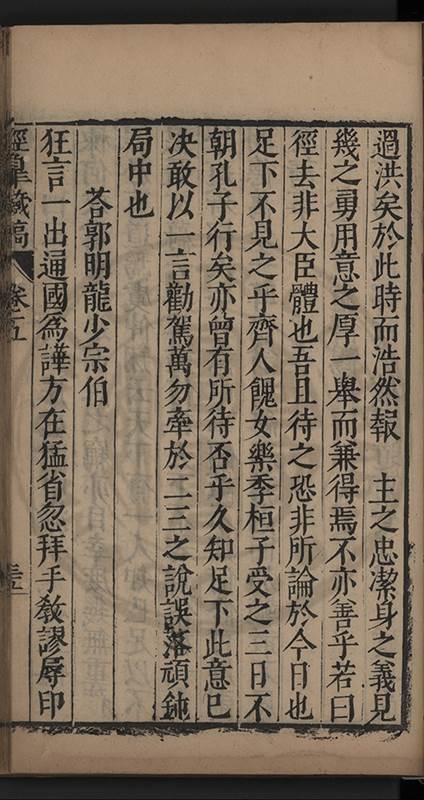 過洪矣於此時而浩然報　主之忠潔身之義見
幾之勇用意之厚一舉而兼得焉不亦善乎若曰
徑去非大臣體也吾且待之恐非所論於今日也
足下不見之乎齊人餽女樂季桓子受之三日不
朝孔子行矣亦曾有所待否乎久知足下此意已
决敢以一言勸駕萬勿牽於二三之說誤落頑鈍
局中也
荅郭明龍少宗伯
狂言一出通國為譁方在猛省忽拜手教謬辱印
涇臯藏稿　卷之五　三十五